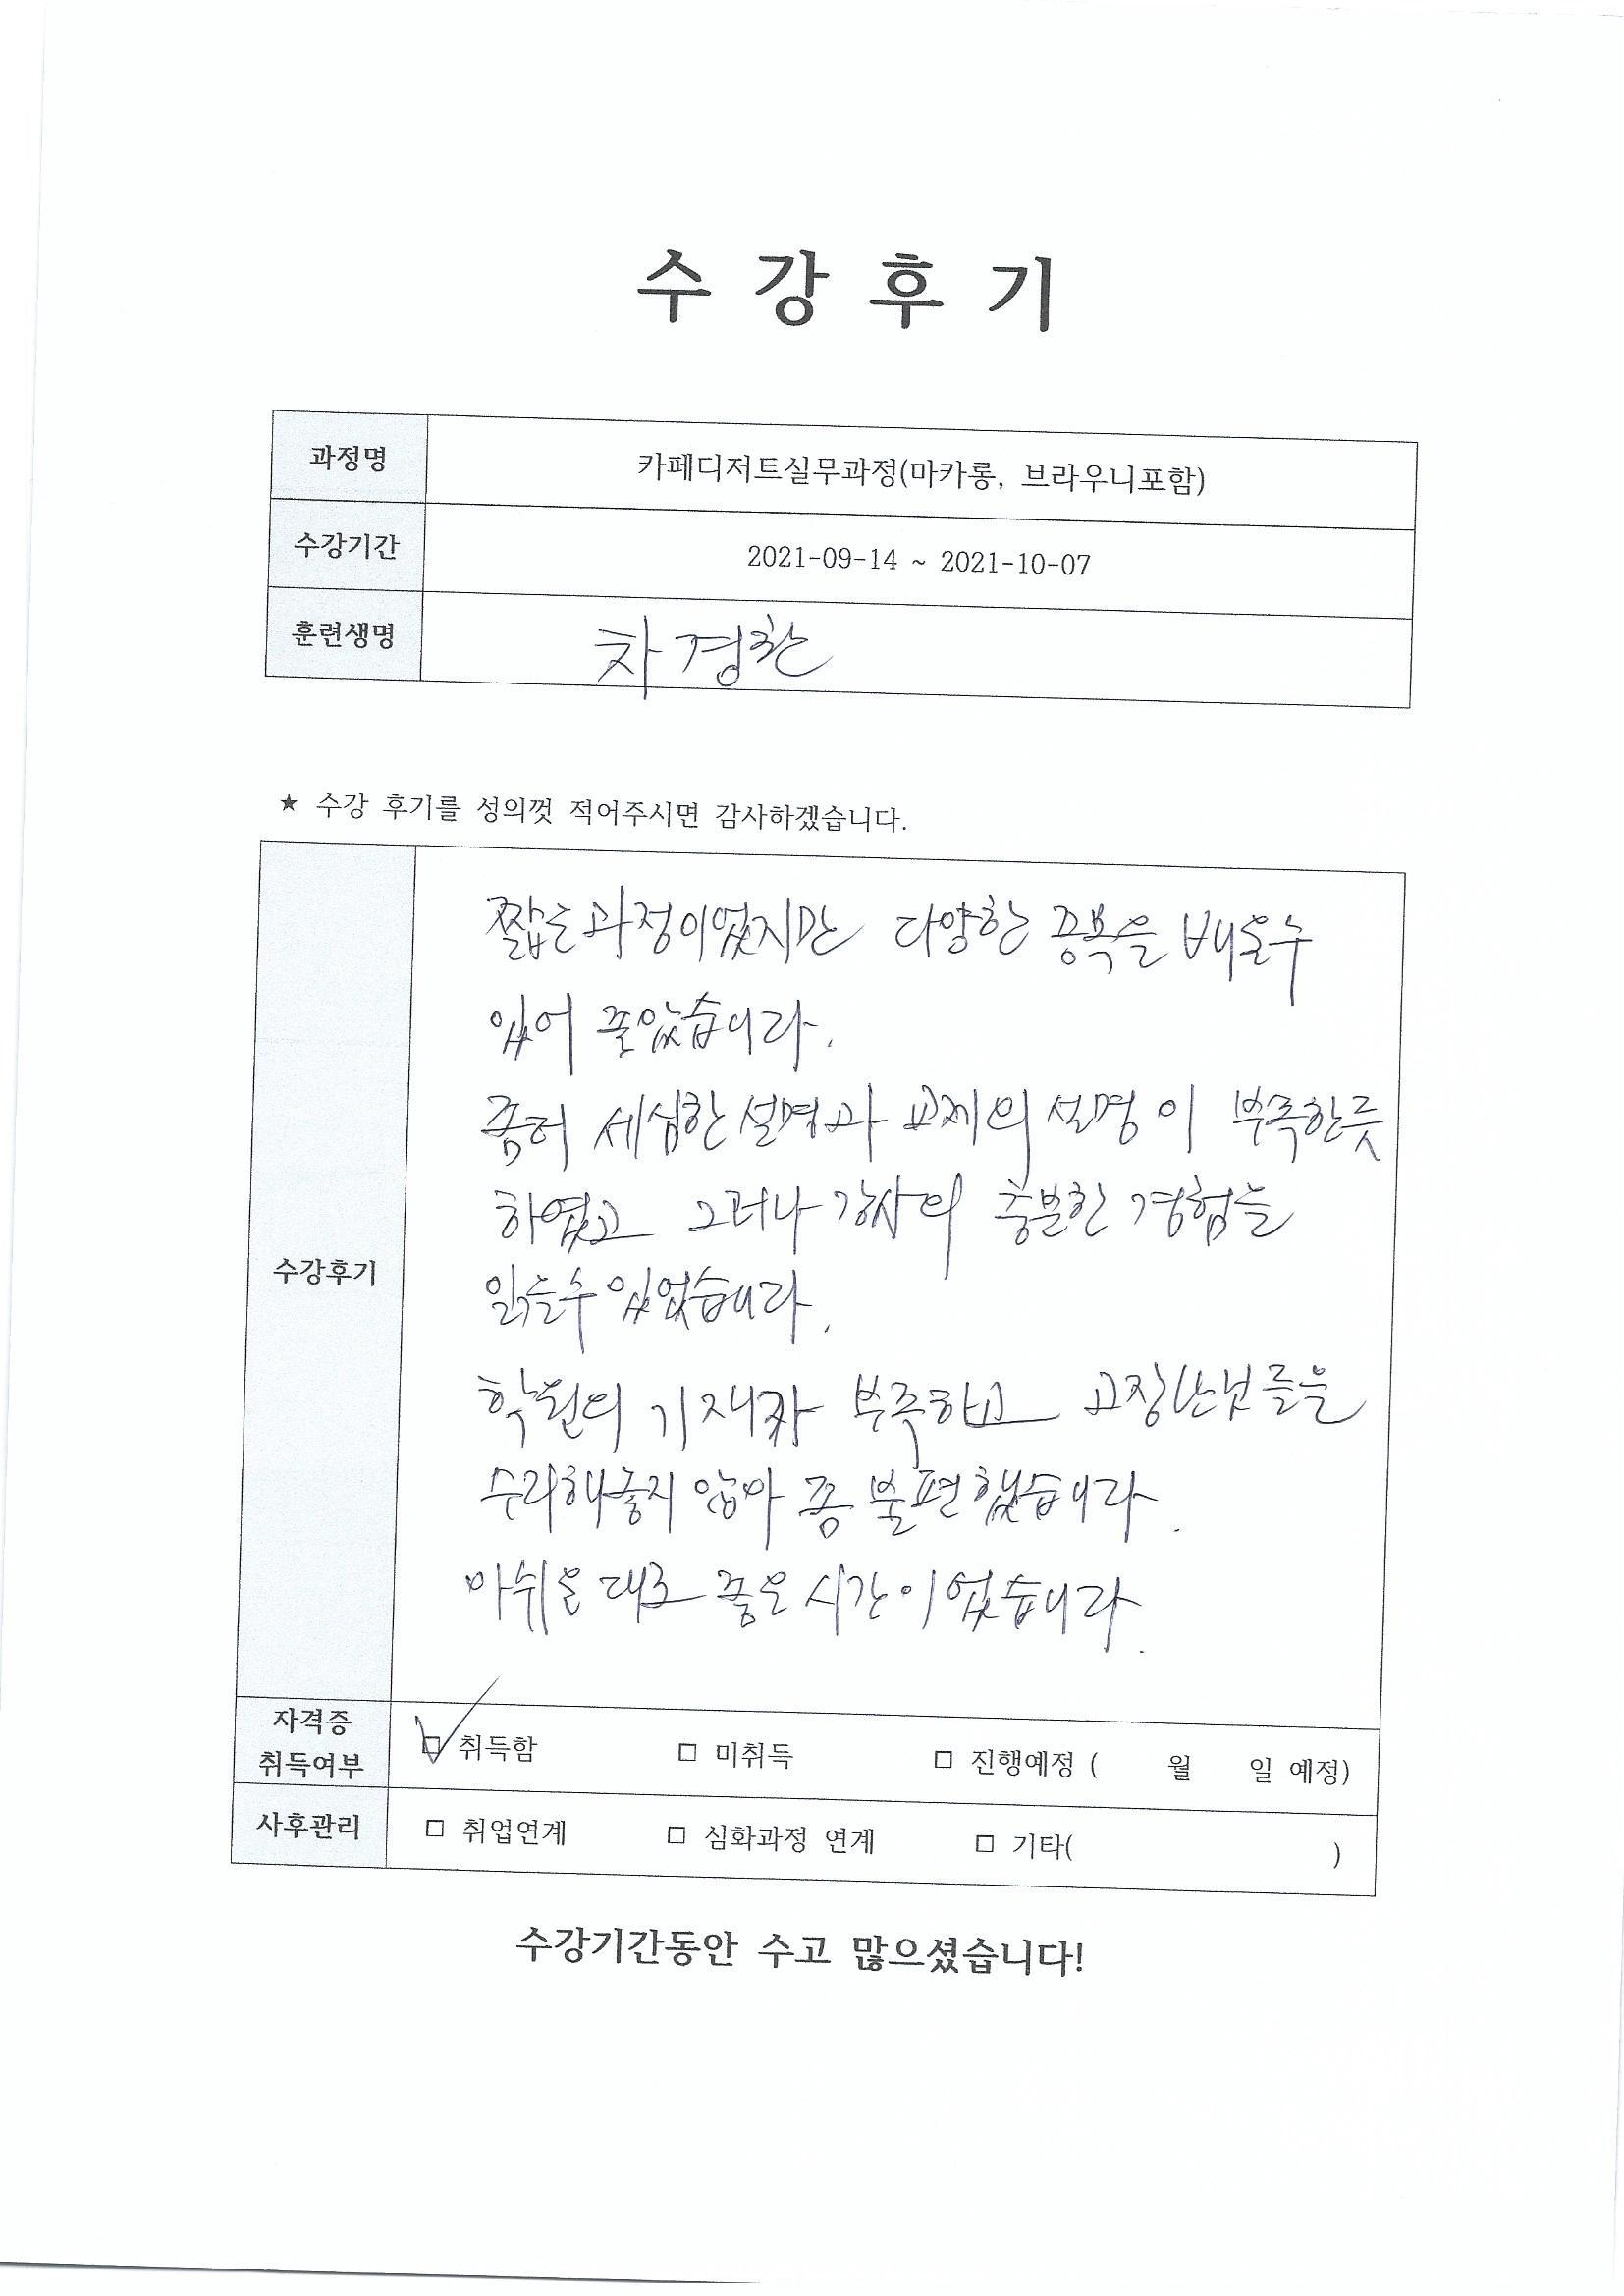 수강후기
과정명 카페디저트실무과정(마카롱, 브라우니포함)
수강기간 2021-09-14 ~ 2021-10-07
훈련생명 차경환
★ 수강 후기를 성의껏 적어주시면 감사하겠습니다.
수강후기
짧은과정이었지만 다양한 종목을 배울수
있어 좋았습니다.
좀더 세심한 설명과 교제의 설명이 부족한듯
하였고 그러나 강사의 충분한 경험을
읽을수 있었습니다.
학원의 기재가 부족하고 고장난것들을
수리해놓지 않아 좀 불편했습니다.
아쉬운 대로 좋은 시간이었습니다.
자격증
취득여부 □ 취득함 □ 미취득 □ 진행예정 ( 월 일 예정)
사후관리 □ 취업연계 □ 심화과정 연계 □ 기타( )
수강기간동안 수고 많으셨습니다!